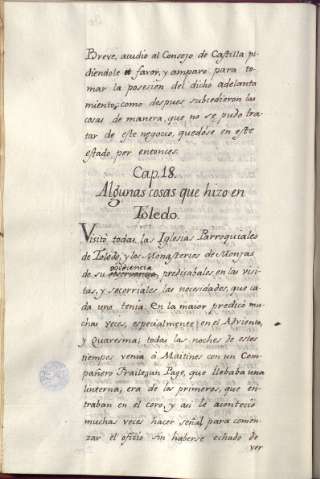 Breve, acudio al Consejo de Castilla pi-
diendole favor, y amparo para to-
mar la posesion del dicho adelanta
miento, como despues subcedieron las
cosas de manera, que no se pudo tra-
tar de este negocio, quedóse en este
estado por entonces.
Cap. 18.
Algunas cosas que hizo en
Toledo.
Visitó todas las Iglesias Parroquiales
de Toledo, y los Monasterios de Monjas
obediencia
de su observancia, predicabales en las visi-
tas, y socorriales las necesidades, que ca-
da uno tenia. En la maior predicó mu-
chas veces, especialmente en el Adviento,
y Quaresma; todas las noches de estos
tiempos venia á Maitines con un Com-
pañero Frailezun Page, que llebaba una
linterna, era de los primeros, que en-
traban en el coro, y asi le aconteció
muchas veces hacer señal para comen-
zar el oficio sin haberse echado de
ver